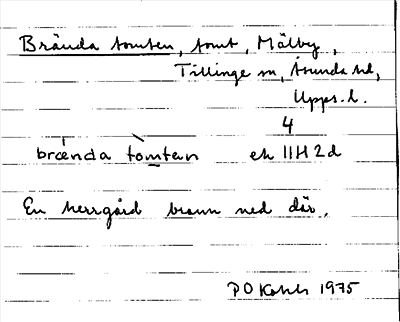 Brända tomten, tomt, Mälby,
Tillinge sn, Åsunda hd,
Upps. l.
4
brǽnda tòmtan ek 11H2d
En herrgård brann ned där.
P O Kohls 1975